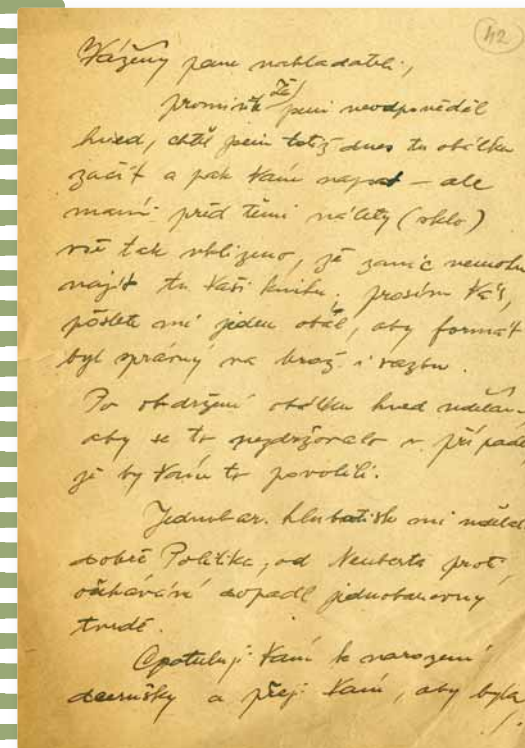 42
Vážený pane nakladateli,
promiňte že jsem neodpověděl
hned, chtěl jsem totiž dnes tu obálku
začít a pak Vám napsat — ale
mám před těmi nálety (sklo)
vše tak uklizeno, že zanic nemohu
najít tu Vaši knihu; prosím Vás,
pošlete mi jeden obál, aby formát
byl správný na brož i vazbu.
Po obdržení obálku hned udělám,
aby se to nezdržovalo v případě
že by Vám to povolili.
Jednobar. hlubotisk mi udělala
dobře Politika, od Neuberta proti
očekávání dopadl jednobarevný
tvrdě.
Gratuluji Vám k narození
dcerušky a přeji Vám, aby byla